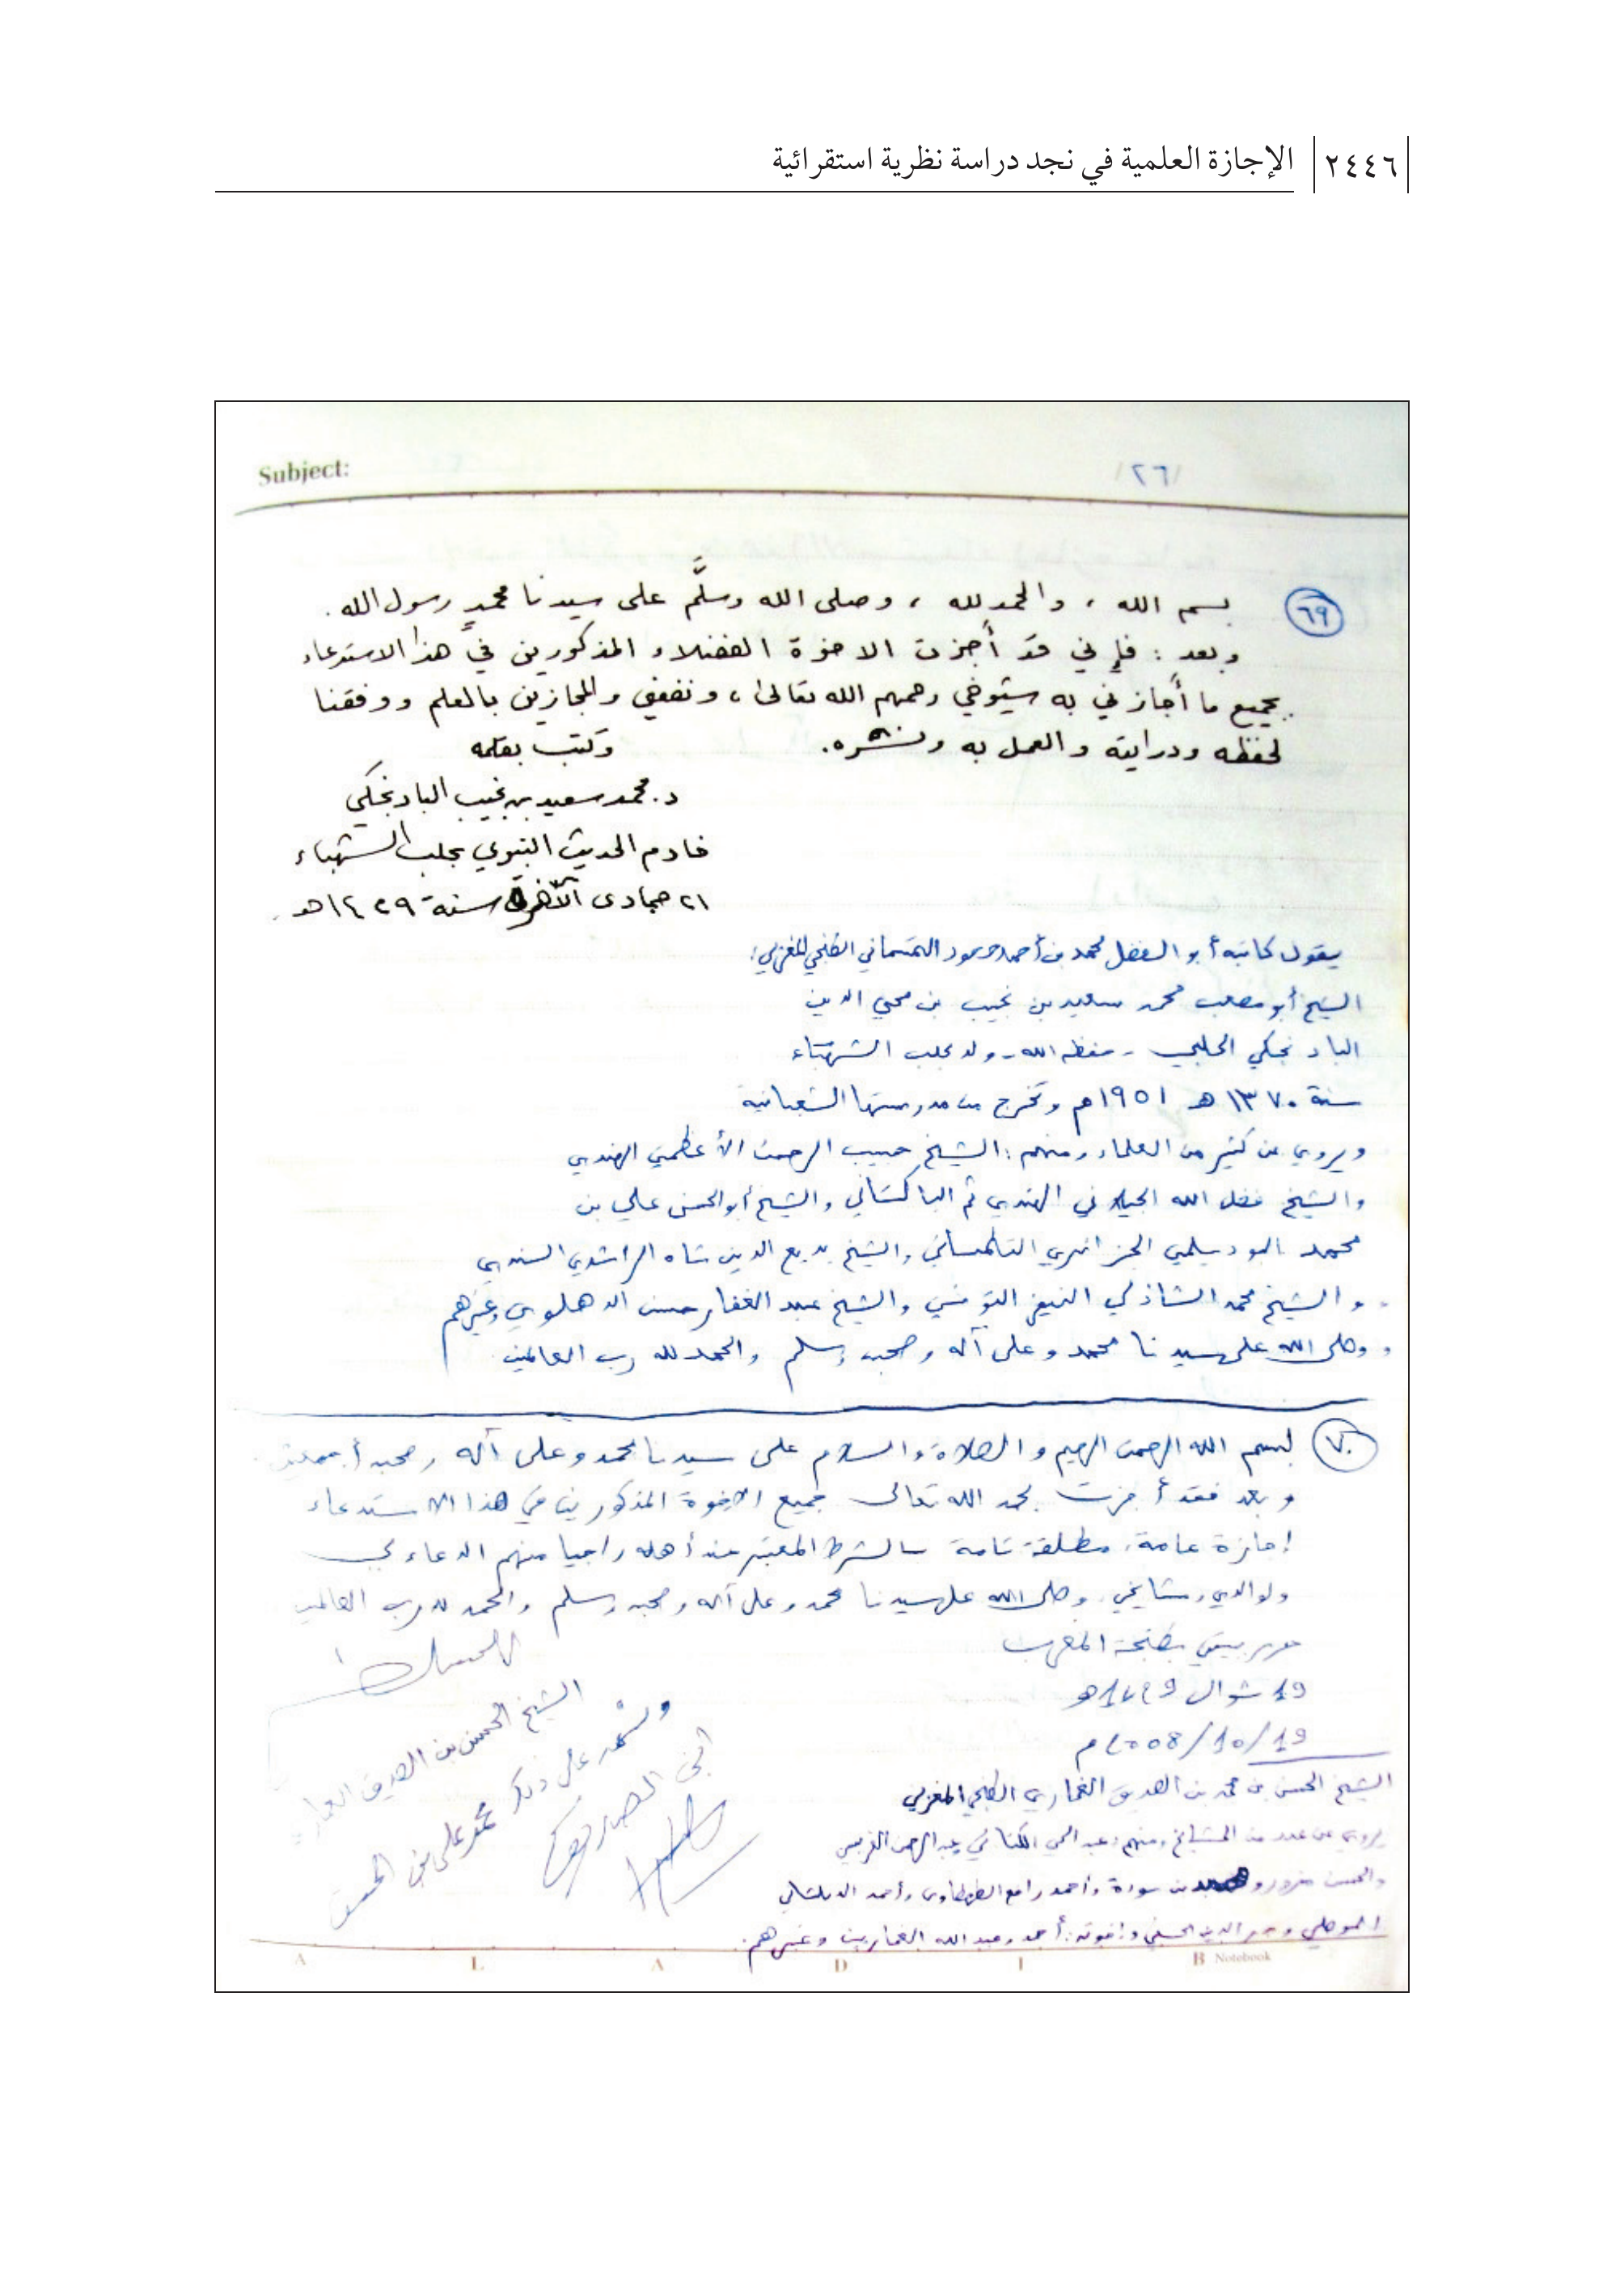 ٢٤٤٦ الإجازة العلمية في نجد دراسة نظرية استقرائية
Subject:
١٢٦١
٦٩
بسم الله ، والحمد لله ، وصلى الله وسلَّم على سيدنا محمدٍ رسول الله .
وبعد : فإني قد أجزت الاخوة الفضلاء المذكورين في هذا الاستدعاء
بجميع ما أجازني به شيوخي رحمهم الله تعالى ، ونفعني والمجازين بالعلم ووفقنا
لحفظه ودرايته والعمل به ونشره . وكتب بقلمه
د. محمد سعيد بن نجيب البادنجكي
خادم الحديث النبوي بحلب الشهباء
٢١ جمادى الآخرة سنة ١٤٢٩ هـ .
يقول كاتبه أبو الفضل محمد بن أحمد حمود التمسماني الطنجي المغربي :
الشيخ أبو مصعب محمد سعيد بن نجيب بن محيي الدين
البادنجكي الحلبي - حفظه الله - ولد بحلب الشهباء
سنة ١٣٧٠ هـ ١٩٥١ م وتخرج من مدرستها الشعبانية
ويروي عن كثير من العلماء ومنهم : الشيخ حبيب الرحمن الأعظمي الهندي
والشيخ فضل الله الجيلاني الهندي ثم الباكستاني والشيخ أبو الحسن علي بن
محمد البوديلمي الجزائري التلمساني والشيخ بديع الدين شاه الراشدي السندي
والشيخ محمد الشاذلي النيفر التونسي والشيخ عبد الغفار حسن الدهلوي وغيرهم
وصلى الله على سيدنا محمد وعلى آله وصحبه وسلم والحمد لله رب العالمين
٧٠
بسم الله الرحمن الرحيم والصلاة والسلام على سيدنا محمد وعلى آله وصحبه أجمعين
وبعد فقد أجزت بحمد الله تعالى جميع الإخوة المذكورين في هذا الاستدعاء
إجازة عامة مطلقة تامة بالشرط المعتبر عند أهله راجيا منهم الدعاء لي
ولوالدي ومشايخي وصلى الله على سيدنا محمد وعلى آله وصحبه وسلم والحمد لله رب العالمين
حرر ببيتي بطنجة المغرب
19 شوال 1429 هـ
19/10/2008 م
الشيخ الحسن بن الصديق الغماري
وشهد على ذلك محمد علي بن الحسن
ابن الصديق
الشيخ الحسن بن محمد بن الصديق الغماري الطنجي المغربي
يروي عن عدد من المشايخ ومنهم : عبد الحي الكتاني وعبد الرحمن الغريسي
والحسن مزور بن سودة وأحمد رافع الطهطاوي وأحمد
الموصلي وبدر الدين الحسني وإخوته : أحمد وعبد الله الغماريين وغيرهم .
A L A D I B Notebook